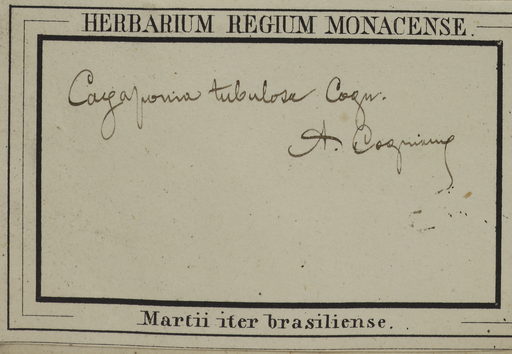 HERBARIUM REGIUM MONACENSE.
Cayaponia tubulosa Cogn.
A. Cogniaux
Martii iter brasiliense.